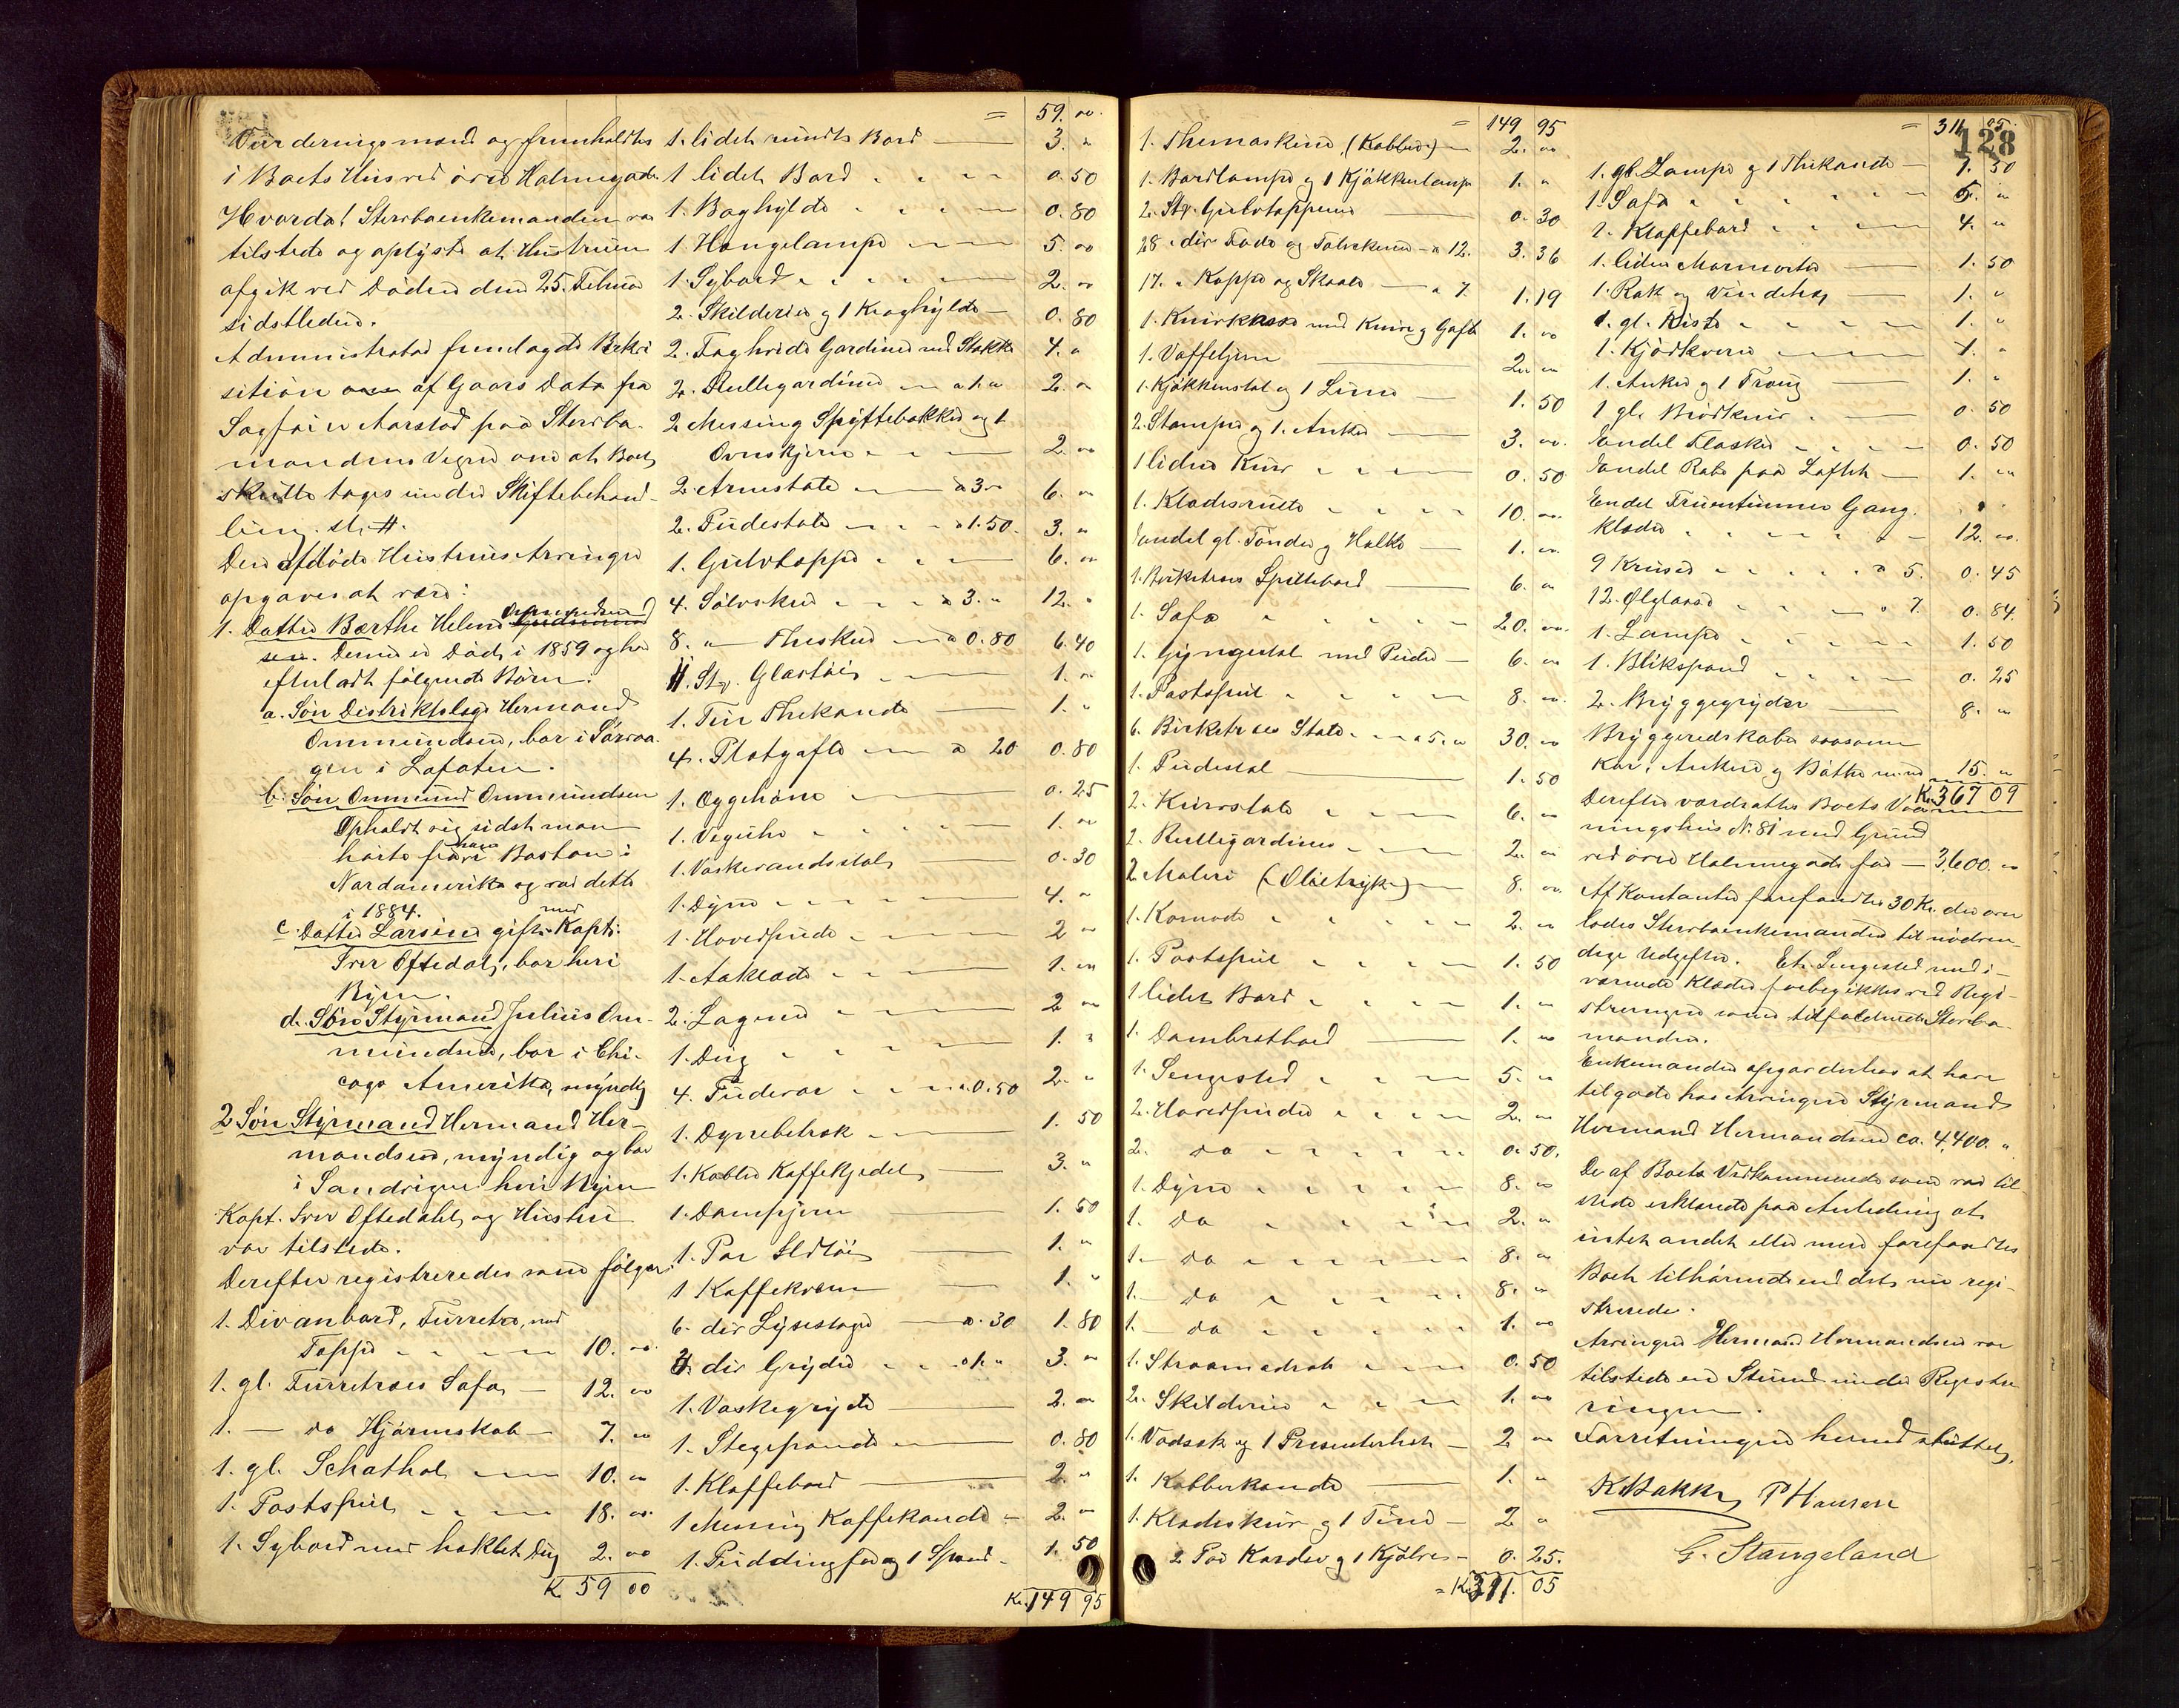 Vurderingsmænd og fremholdtes
i Boets Hus ved övre Holmegade.
Hvorda! Sterboenkemanden var
tilstede og oplyste at Hustruen
afgik ved Döden den 25. Februar
sidstleden.
Administrator fremlagde Rekvi
sition af Gaars Dato fra
Sagförer Aarstad paa Sterbo-
mandens Vegne om at Boet
skulle tages under Skiftebehand-
ling.
Den afdöde Hustrues Arvinger
opgaves at være:
1. Datter Bærthe Helene Ommundsen
sen. Denne er Död i 1859 og har
efterladt fölgende Börn:
a. Sön Distriktslæge Hermand
Ommundsen, bor i Sörvaa-
gen i Lofoten.
b. Sön Ommund Ommundsen
Opholdt sig sidst man
hörte fra ham i Boston i
Nordamerika og var dette
i 1884.
c. Datter Larsine gift med Kapt.
Iver Oftedal, bor her i
Byen.
d. Sön Styrmand Julius Om-
mundsen, bor i Chi-
cago Amerika, myndig
2 Sön Styrmand Hermand Her-
mandsen, myndig og bor
i Sandvigen her i Byen
Kapt. Iver Oftedahl og Hustru
var tilstede.
Derefter registreredes som fölger:
1. Divanbord, Furretræ, med
Teppe 10. 00
1. gl. Furretræes Sofa — 12. 00
1. — do Hjörneskab — 7. 00
1. gl. Schathol 10. 00
1. Postspeil 18. 00
1. Sybord med heklet Dug 2. 00
K 59 00
= 59. 00
1. lidet rundt Bord 3. "
1 lidet Bord 0. 50
1. Boghylde 0. 80
1. Hængelampe 5. 00
1. Sybord 2. 00
2. Skilderier og 1 Kraghylde — 0. 80
2. Faghvide Gardiner med Stokke 4. "
2. Rullegardiner a 1. " 2. 00
2 Messing Spyttebakker og 1
Ovnskjerm 2. 00
2 Armestole a 3 " 6. 00
2. Pudestole a 1.50. 3. "
1. Gulvteppe 6. 00
4. Sölvskeer a 3. " 12. "
8. " Theskeer a 0.80 6. 40
Stk. Glastöi 1. 00
1. Tin Thekande 1. "
4. Pletgafle a 20 0. 80
1. Eggehöne 0. 25
1. Væguhr 1. 00
1. Vaskevandsstol 0. 30
1. Dyne 4. "
1. Hovedpude 2 "
1. Aaklæde 1. 00
2. Lagener 2 00
1. Dug 1. "
4. Pudevar a 0.50 2. "
1. Dynebetræk 1. 50
1. Kobber Kaffekjedel 3. "
1. Dampjern 1. 50
1. Par Ildtöi 1. "
1 Kaffekværn 1. "
6. dir Lysestager a. 30 1. 80
dir Gryder a 1. " 3. 00
1. Vaskegryde 2. 00
1. Stegepande 0. 80
1. Klaffebord 2. "
1 Messing Kaffekande 2. 00
1. Puddingfad og 1 Spand 1. 50
Kr. 149 95
= 149 95
1. Themaskine, (Kobber) 2. 00
1. Bordlampe og 1 Kjökkenlampe 1. "
2. Stk. Gulvtepperne 0. 30
28. dir Fade og Tallerkener a 12. 3. 36
17. " Kopper og Skaale a 7. 1. 19
1. Knivkasse med Knive og Gafle 1. 00
1. Vaffeljern 2. 00
1. Kjökkenstol og 1 1. 50
2. Stamper og 1. Anker 3. 00
1 liden Kurv 0. 50
1. Klædesrulle 10. 00
Endel gl. Tönder og Halke 1. 00
1. Birketræes Spillebord 6. 00
1. Sofa 20. 00
1. Gyngestol med Puder 6. 00
1. Postspeil 8. 00
6. Birketræes Stole a 5. " 30. 00
1. Pudestol 1. 50
2. Kurvstole 6. 00
2. Rullegardiner 2. 00
2 Maleri (Olietryk) 8. 00
1. Komode 2. 00
1. Postspeil 1. 50
1 lidet Bord 1. "
1. Dambrætbord 1. 00
1. Sengested 5. "
2. Hovedpuder 2. 00
2. do 0. 50.
1. Dyne 8. 00
1. do 2. "
1. do 8. 00
1. do 8. 00
1. do 1. 00
1. Straamadras 0. 50
2. Skilderier 1. 00
1. Vadsæk og 1 Presenterbret 2 00
1. Kobberkande 1. "
1. Klædeskurv og 1 Tine 2 "
2 Par Karder og 1 0. 25.
= Kr 311. 05
128
= 311 05.
1. gl. Lampe og 1 Thekande 1. 50
1 Sofa 5. "
1. Klaffebord 4. "
1. liden Marmorter 1. 50
1. Rok og Vindehes 1. "
1. gl. Kiste 1. "
1. Kjödkværn 1. "
1. Anker og 1 Traug 1. "
1 gl. Brödkurv 0. 50
Endel Flasker 0. 50
Endel Rabe paa Loftet 1. 00
Endel Fruentimmer Gang-
klæder 12. 00.
9 Kruser a 5. 0. 45
12. Ølglasse a 7. 0. 84.
1. Lampe 1. 50
1. Blikspand 0. 25
2. Bryggegryder 8. 00
Bryggeredskaber saasom
Kar, Ankere og Bötter m.m 15. "
Kr. 367 09
Derefter værdsattes Boets Vaa-
ningshus No. 81 med Grund
ved övre Holmegade for — 3,600. 00
Af Kontanter forefandtes 30 Kr. der over
lodes Sterboenkemanden til nödven-
dige Udgifter. Et Sengested med i-
værende Klæder forbigikkes ved Regi-
streringen som tilfaldende Sterbo-
manden.
Enkemanden opgav derhos at have
tilgode hos Arvingen Styrmand
Hermand Hermandsen ca. 4,400. "
De af Boets Vedkommende som var til
stede erklærede paa Anledning at
intet andet eller mere forefandtes
Boet tilhörende end det nu regi-
strerede.
Arvingen Hermand Hermandsen var
tilstede en Stund under Registre
ringen.
Forretningen hermed sluttet,
K Bakke P Hansen
G. Stangeland